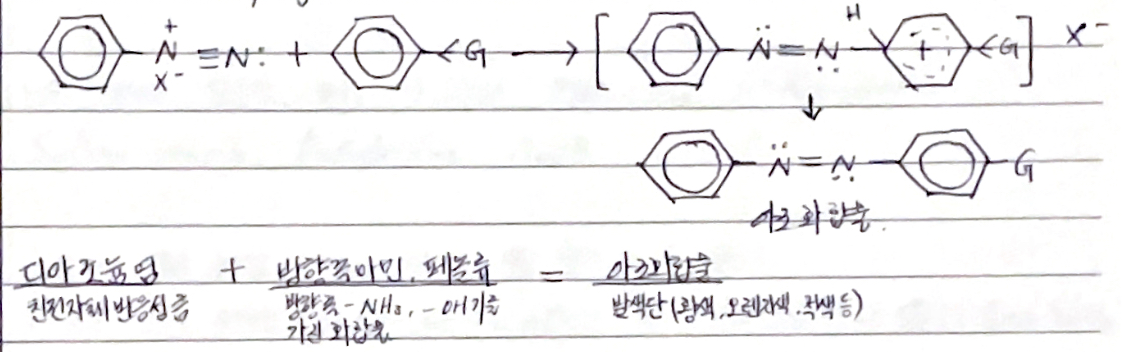 +
N ≡ N: + <G → [ N = N H + <G ] X⁻
X⁻
↓
N = N G
아조 화합물.
디아조늄염 + 방향족아민, 페놀류 = 아조화합물
친전자체 반응성 방향족 -NH₂, -OH기를 발색단 (황색, 오렌지색, 적색 등)
가진 화합물